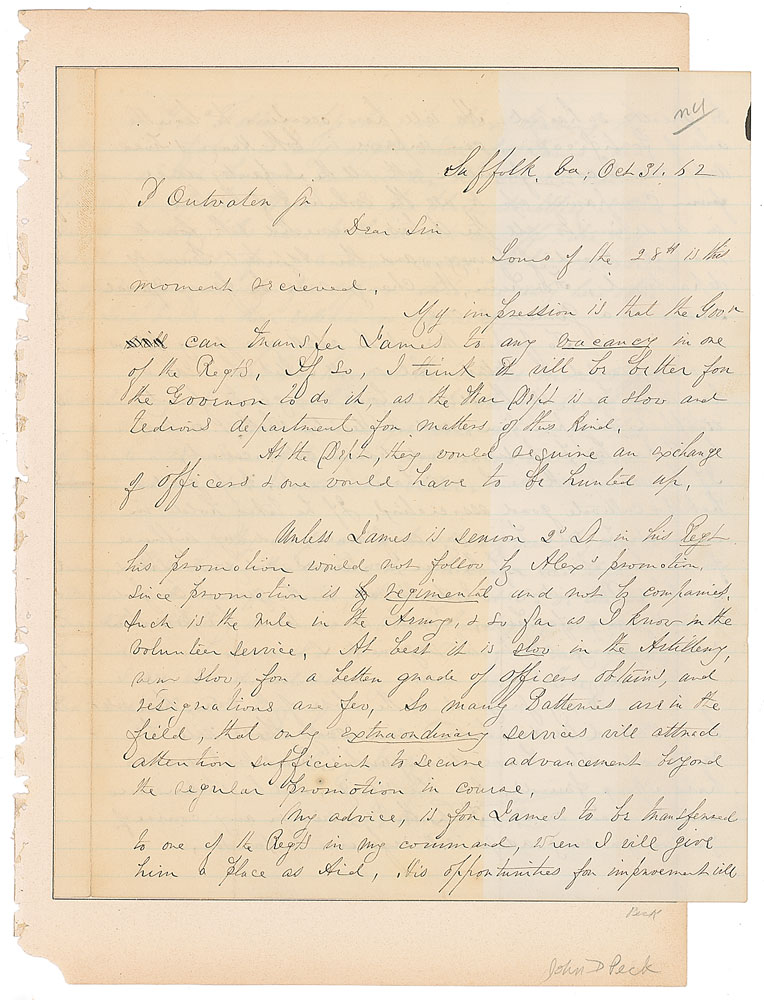 NY
Suffolk, Va, Oct 31. 62
P Outwater Jr
Dear Sir
Yours of the 28th is this
moment recieved.
My impression is that the Govr
can transfer James to any vacancy in one
of the Regts, If so, I think it will be better for
the Govenor to do it, as the War Dept is a slow and
tedious department for matters of this kind.
At the Dept, they would require an exchange
of officers & one would have to be hunted up.
Unless James is senior 2d Lt in his Regt
his promotion would not follow by Alexs promotion,
since promotion is regimental and not by companies.
Such is the rule in the Army, & so far as I know in the
volunteer service. At best it is slow in the Artillery,
very slow, for a better grade of officers obtains, and
resignations are few, So many Batteries are in the
field, that only extraordinary services will attract
attention sufficient to secure advancement beyond
the regular promotion in course.
My advice, is for James to be transferred
to one of the Regts in my command, when I will give
him a place as Aid, His opportunities for improvement will
Peck
John D Peck